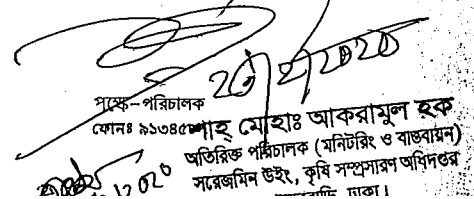 ২০/২/২০২০
পক্ষে-পরিচালক
ফোনঃ ৯১৩৪৫
শাহ্ মোহাঃ আকরামুল হক
অতিরিক্ত পরিচালক (মনিটরিং ও বাস্তবায়ন)
সরেজমিন উইং, কৃষি সম্প্রসারণ অধিদপ্তর
ঢাকা।